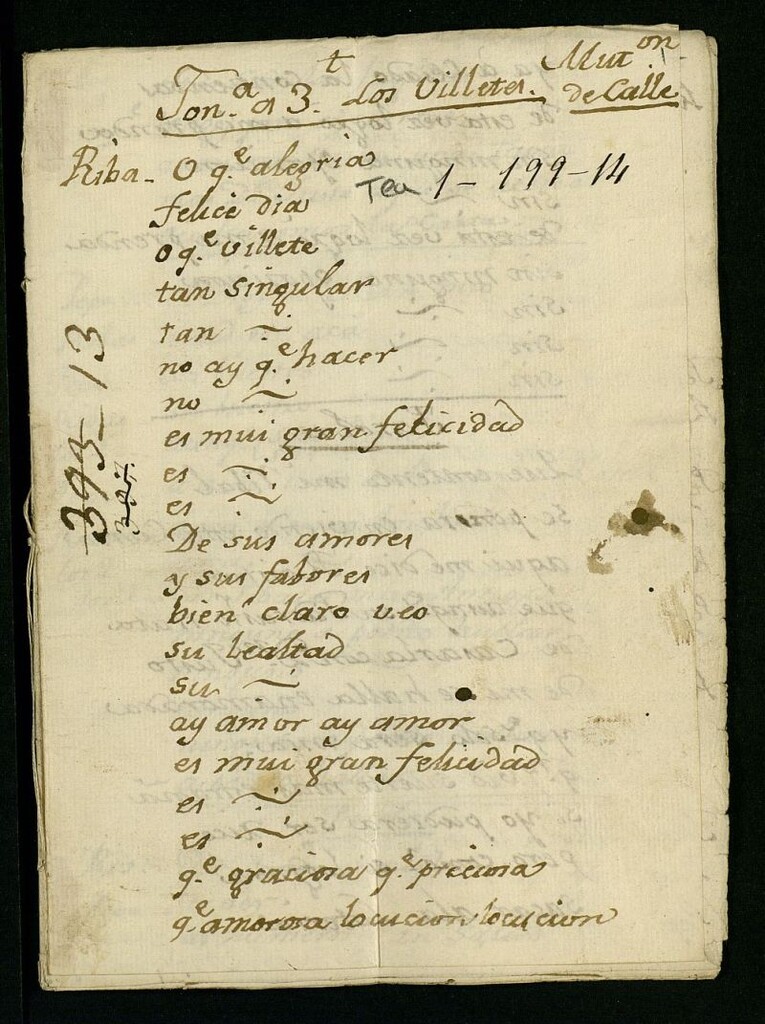 t
Ton.ª a 3. Los Villetes. Mut.on de Calle
Riba- O q.e alegria
Tea 1-199-14
felice dia
o q.e villete
tan singular
tan ~
no ay q.e hacer
no ~
es mui gran felicidad
es ~
es ~
De sus amores
y sus fabores
bien claro veo
su lealtad
su ~
ay amor ay amor
es mui gran felicidad
es ~
es ~
q.e graciosa q.e preciosa
q.e amorosa locucion locucion
393-13